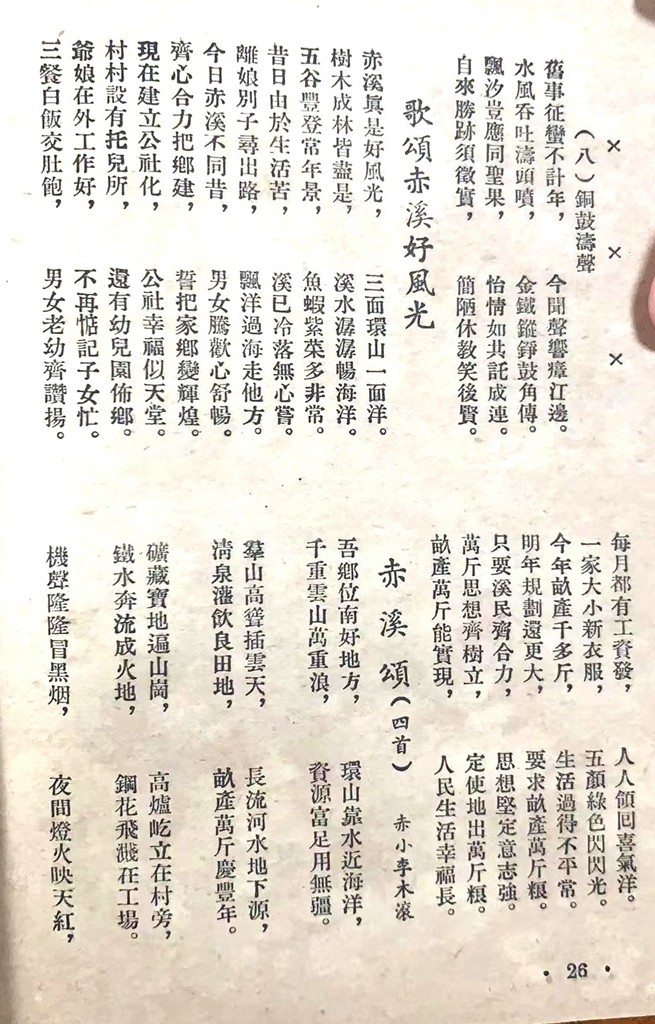 × × ×
（八）銅鼓濤聲
舊事征蠻不計年，今聞聲響瘴江邊。
水風吞吐濤頭噴，金鐵鏦錚鼓角傳。
飄汐豈應同聖果，怡情如共託成連。
自來勝跡須徵實，簡陋休教笑後賢。
歌頌赤溪好風光
赤溪眞是好風光，三面環山一面洋。
樹木成林皆盡是，溪水潺潺暢海洋。
五谷豐登常年景，魚蝦紫菜多非常。
昔日由於生活苦，溪已冷落無心嘗。
離娘別子尋出路，飄洋過海走他方。
今日赤溪不同昔，男女騰歡心舒暢。
齊心合力把鄉建，誓把家鄉變輝煌。
現在建立公社化，公社幸福似天堂。
村村設有托兒所，還有幼兒園佈鄉。
爺娘在外工作好，不再惦記子女忙。
三餐白飯交肚飽，男女老幼齊讚揚。
每月都有工資發，人人領回喜氣洋。
一家大小新衣服，五顏綠色閃閃光。
今年畝產千多斤，生活過得不平常。
明年規劃還更大，要求畝產萬斤粮。
只要溪民齊合力，思想堅定意志強。
萬斤思想齊樹立，定使地出萬斤粮。
畝產萬斤能實現，人民生活幸福長。
赤溪頌（四首）　赤小李木滾
吾鄉位南好地方，環山靠水近海洋，
千重雲山萬重浪，資源富足用無疆。
羣山高聳插雲天，長流河水地下源，
淸泉灌飲良田地，畝產萬斤慶豐年。
礦藏寶地遍山崗，高爐屹立在村旁，
鐵水奔流成火地，鋼花飛濺在工場。
機聲隆隆冒黑烟，夜間燈火映天紅，
·26·